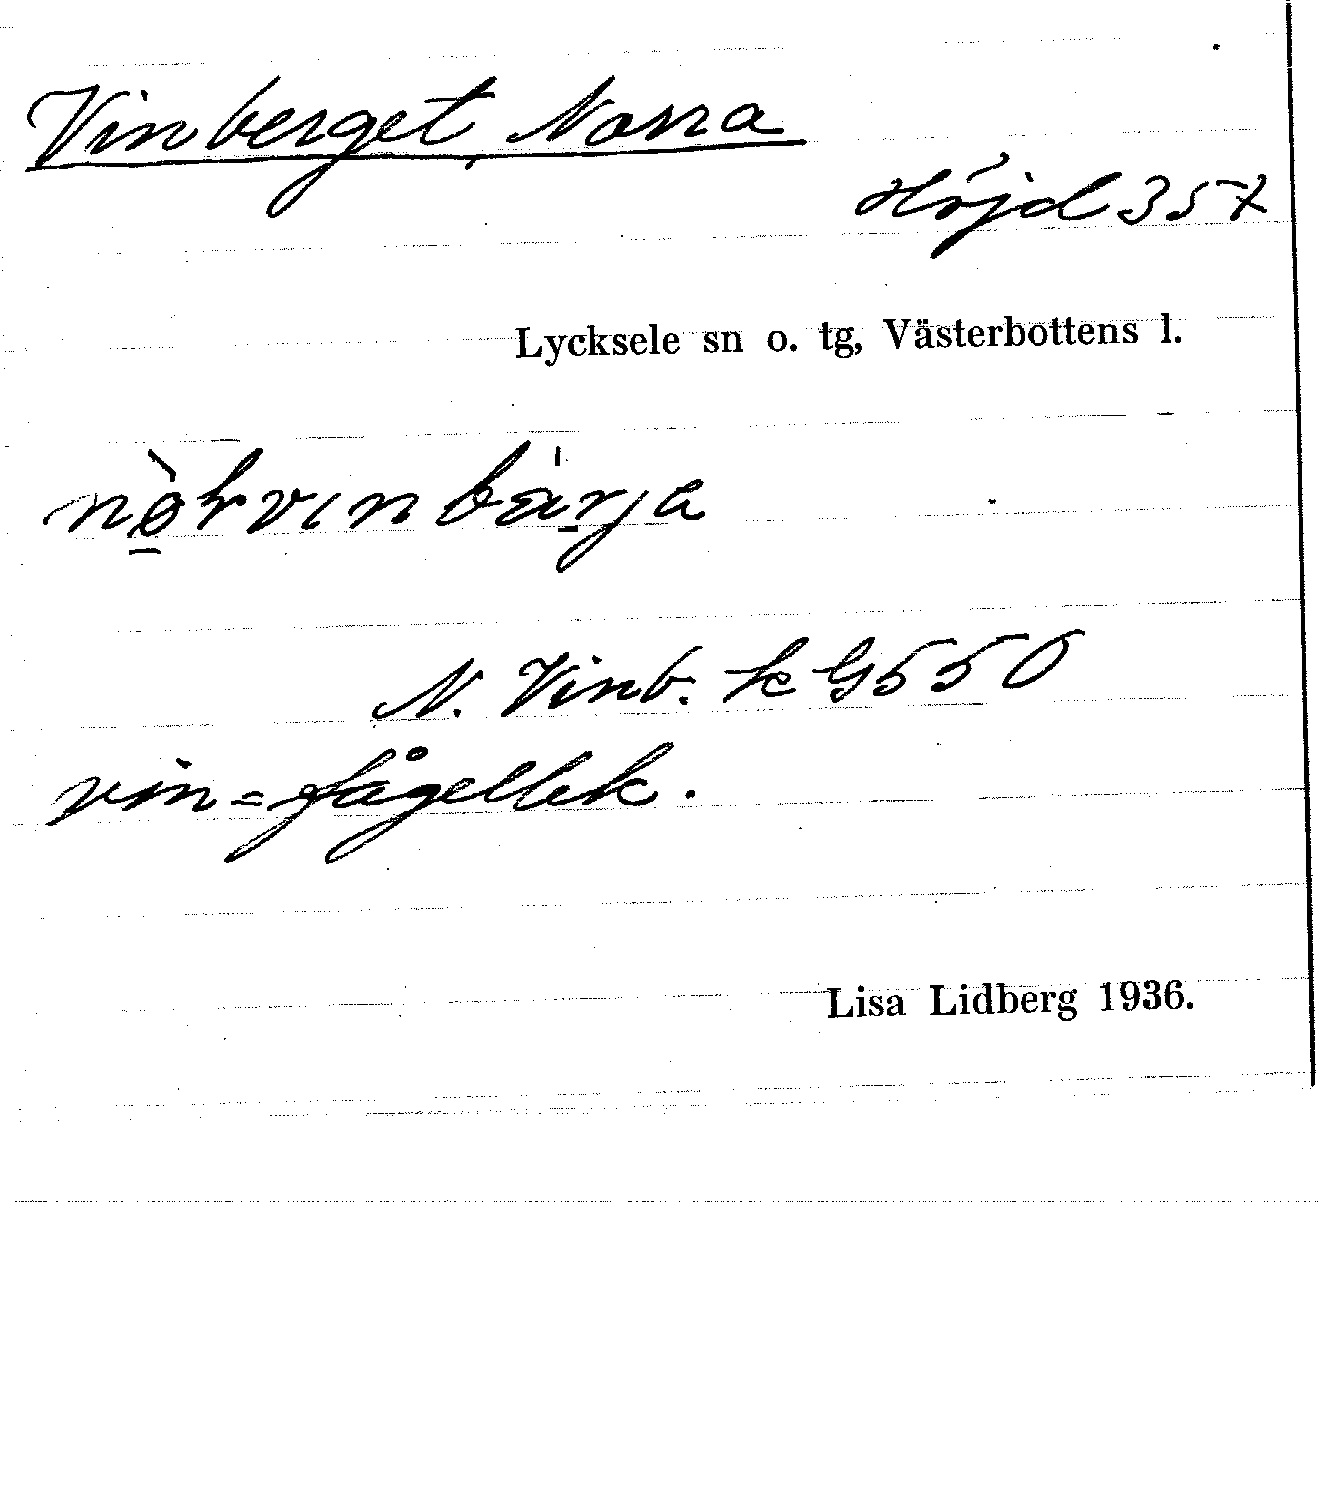 Vinberget, Norra
Höjd 357
Lycksele sn o. tg, Västerbottens l.
N. Vinb. k G550
vin = fågellek.
Lisa Lidberg 1936.